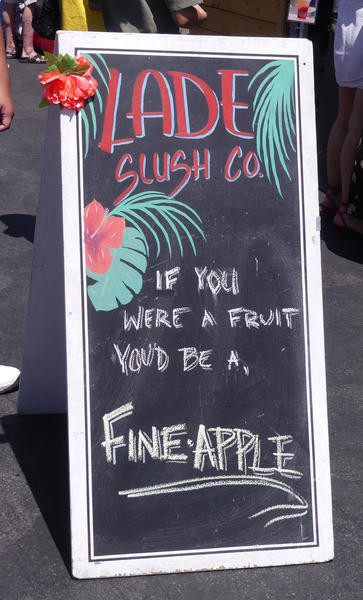 LADE
SLUSH CO.
IF YOU
WERE A FRUIT
YOU'D BE A,
FINE·APPLE